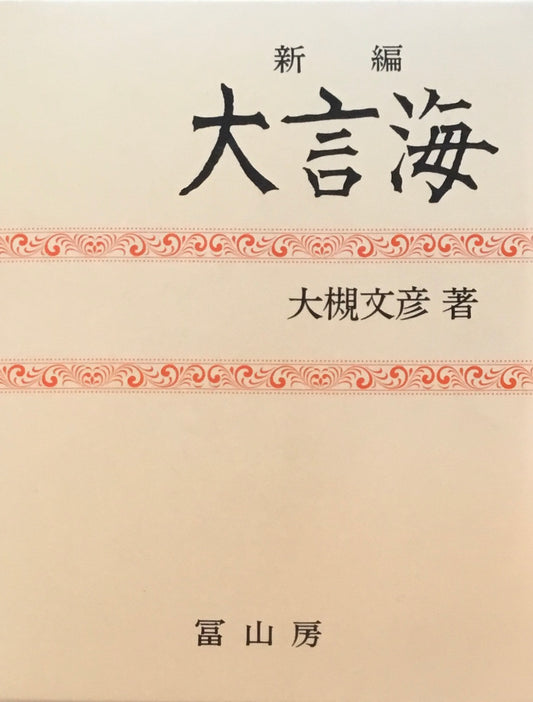 新編
大言海
大槻文彦 著
冨山房